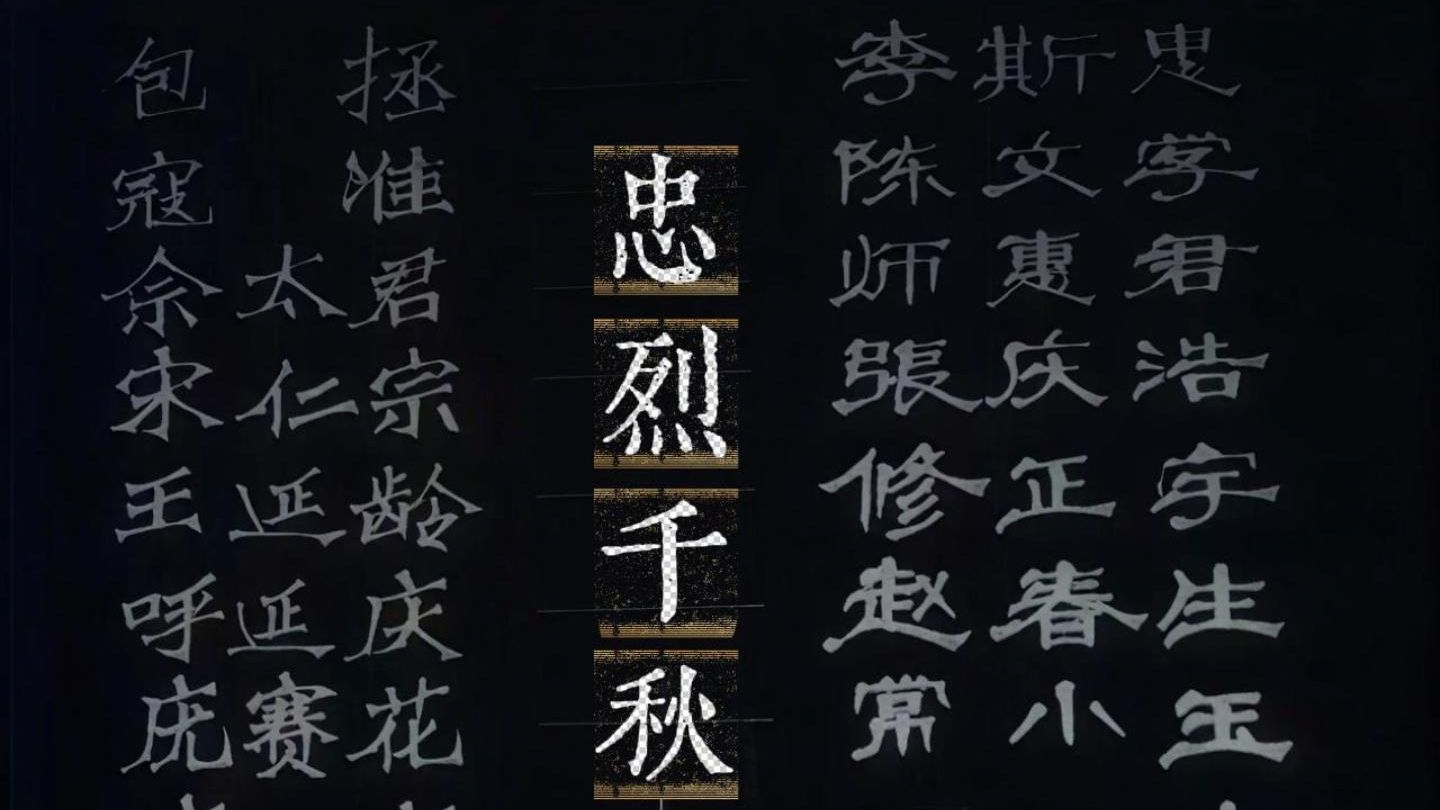 忠烈千秋
包拯 李斯忠
寇准 陈文学
佘太君 师惠君
宋仁宗 張庆浩
王延龄 修正宇
呼延庆 赵春生
庞赛花 常小玉